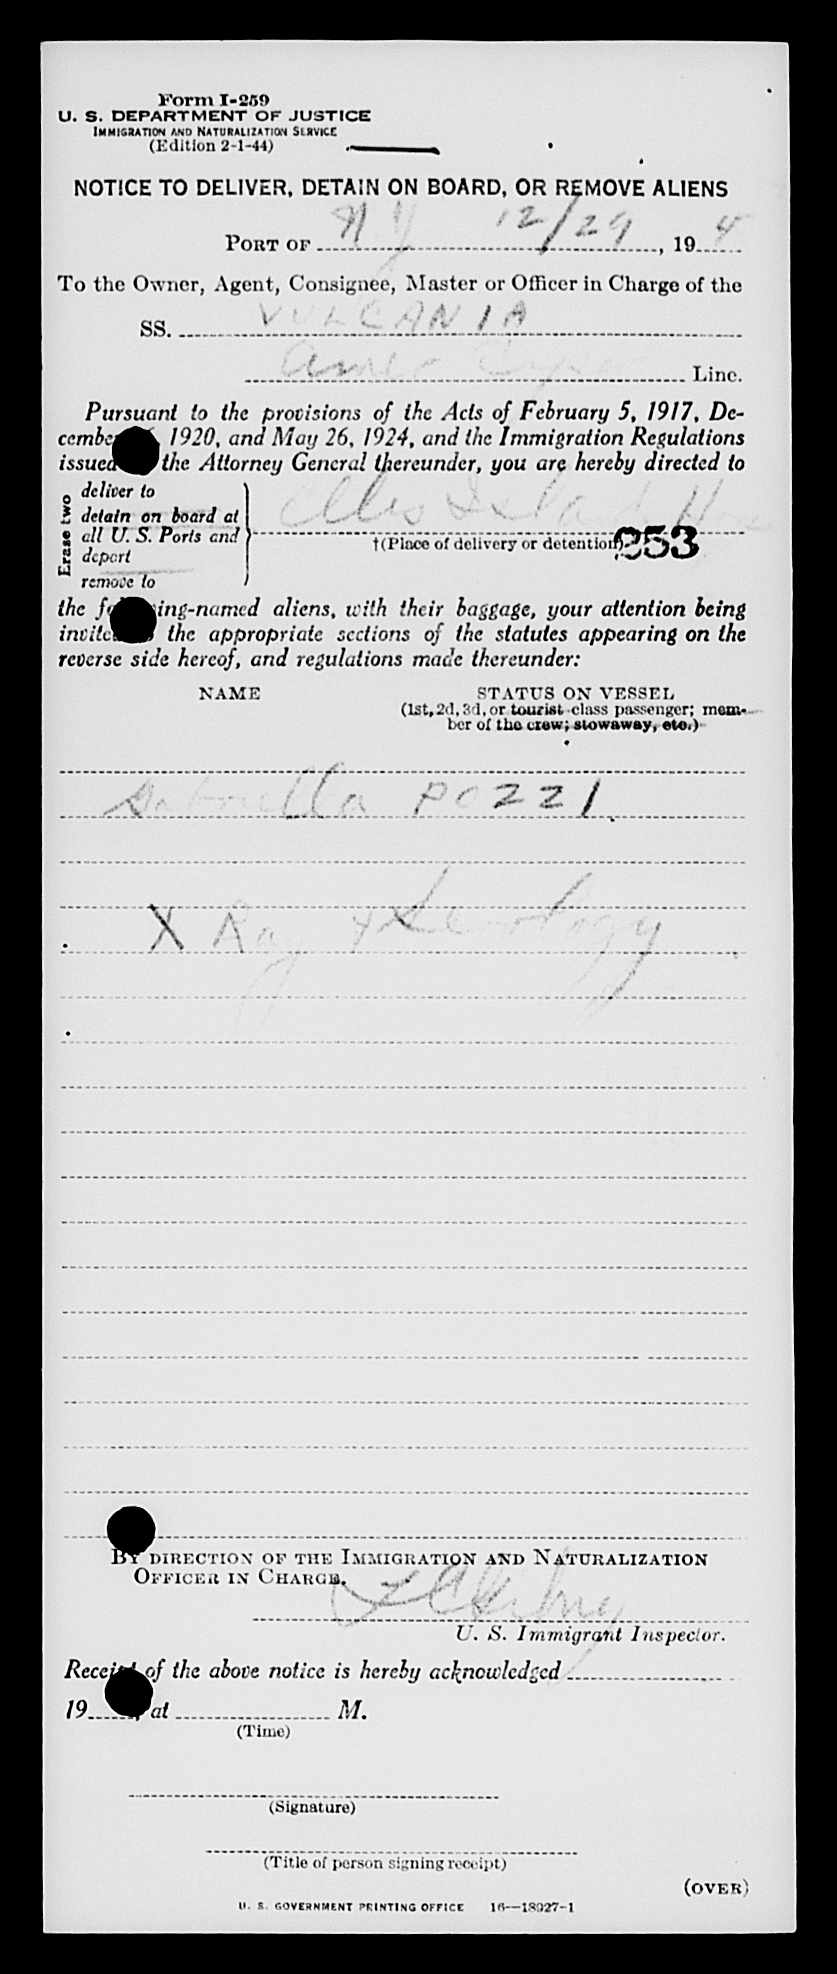 Form I-259
U. S. DEPARTMENT OF JUSTICE
IMMIGRATION AND NATURALIZATION SERVICE
(Edition 2-1-44)
NOTICE TO DELIVER, DETAIN ON BOARD, OR REMOVE ALIENS
PORT OF NY 12/29, 194
To the Owner, Agent, Consignee, Master or Officer in Charge of the
SS. VULCANIA
Amer Line.
Pursuant to the provisions of the Acts of February 5, 1917, De-
1920, and May 26, 1924, and the Immigration Regulations
issued the Attorney General thereunder, you are hereby directed to
Erase two
deliver to
detain on board at
all U. S. Ports and
deport
remove to
Ellis Island
†(Place of delivery or detention)
253
the ing-named aliens, with their baggage, your attention being
the appropriate sections of the statutes appearing on the
reverse side hereof, and regulations made thereunder:
NAME STATUS ON VESSEL
(1st, 2d, 3d, or tourist class passenger; mem-
ber of the crew; stowaway, etc.)
Gabriella POZZI
X Ray & Serology
BY DIRECTION OF THE IMMIGRATION AND NATURALIZATION
OFFICER IN CHARGE.
U. S. Immigrant Inspector.
Receipt of the above notice is hereby acknowledged
19 , at M.
(Time)
(Signature)
(Title of person signing receipt)
(OVER)
U. S. GOVERNMENT PRINTING OFFICE 16—18927-1